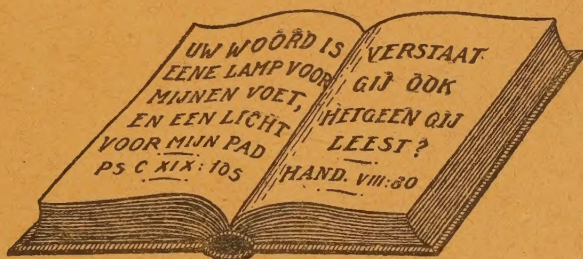 UW WOORD IS
EENE LAMP VOOR
MIJNEN VOET,
EN EEN LICHT
VOOR MIJN PAD
PS C XIX:105
VERSTAAT
GIJ OOK
HETGEEN GIJ
LEEST?
HAND. VIII:30